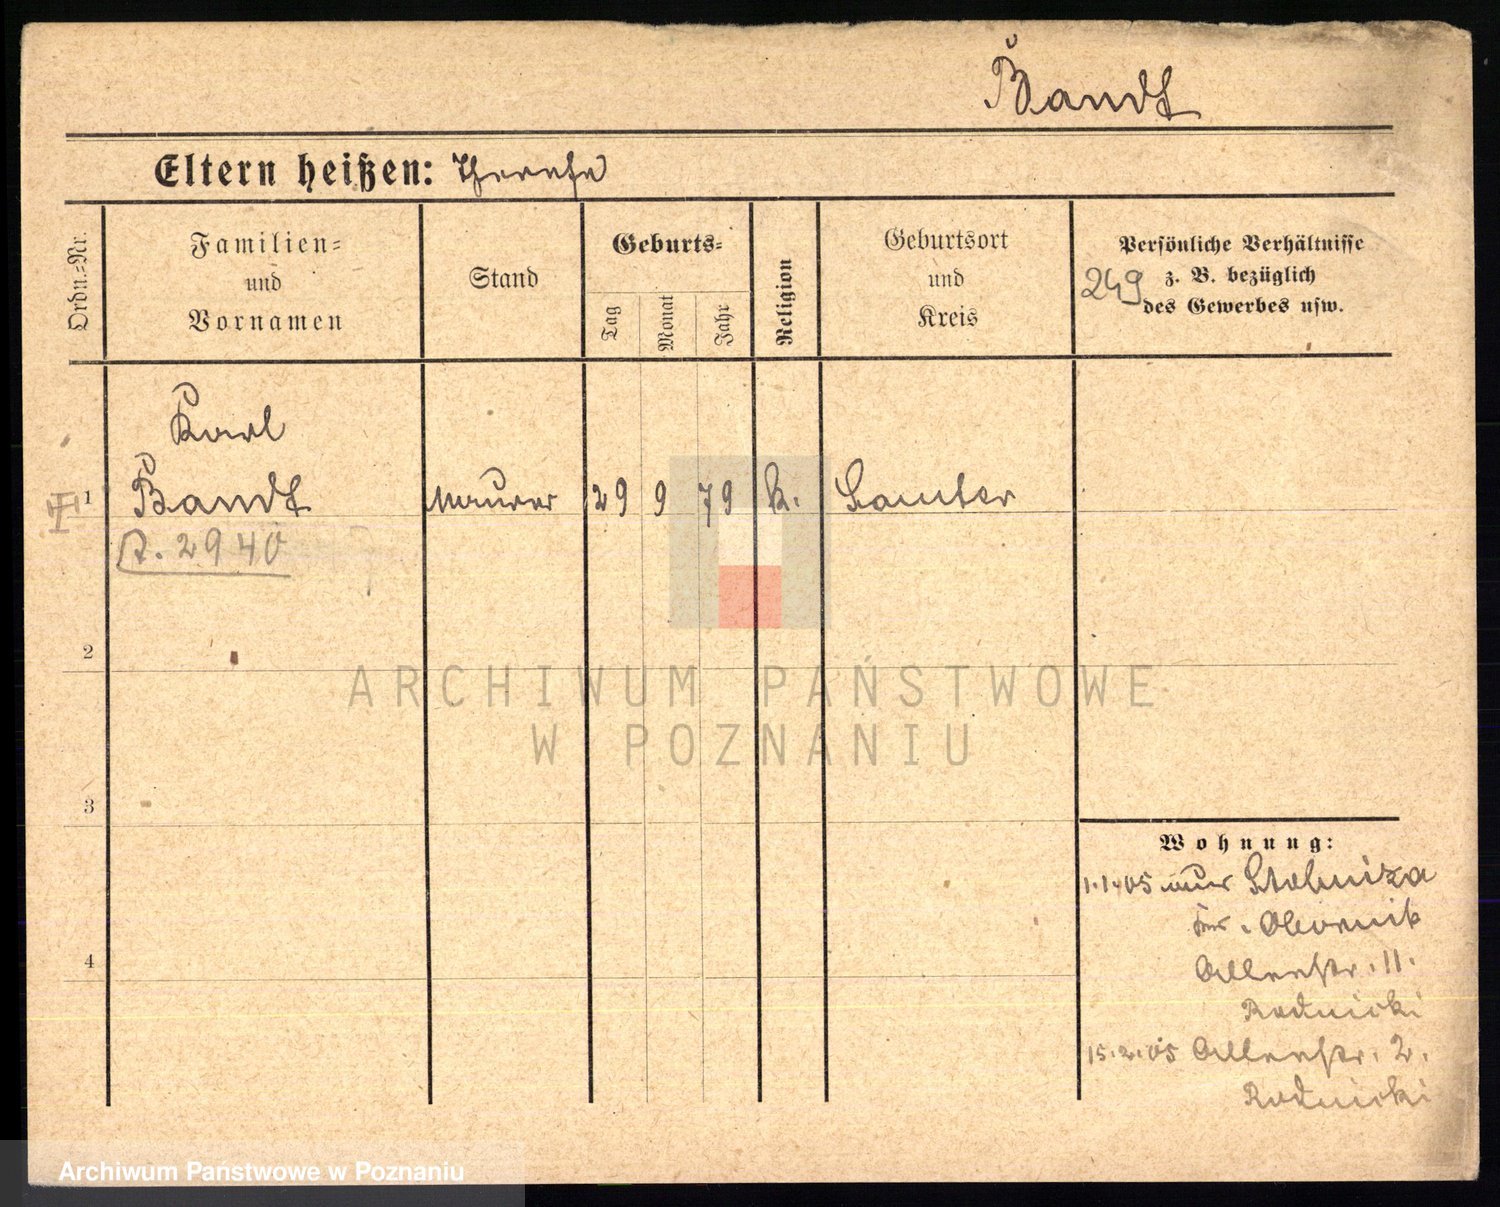 Bandt
Eltern heißen: Therese
Ordn.=Nr.
Familien=
und
Vornamen
Stand
Geburts=
Tag
Monat
Jahr
Religion
Geburtsort
und
Kreis
Persönliche Verhältnisse
z. B. bezüglich
des Gewerbes usw.
249
Karl
1 Bandt Maurer 29 9 79 k. Samter
2940
2
3
4
Wohnung:
1.1.05 Stobnica
Obornik
Allerstr. 11.
Rodnicki
15.2.05 Allerstr. 2.
Rodnicki
ARCHIWUM PAŃSTWOWE
W POZNANIU
Archiwum Państwowe w Poznaniu